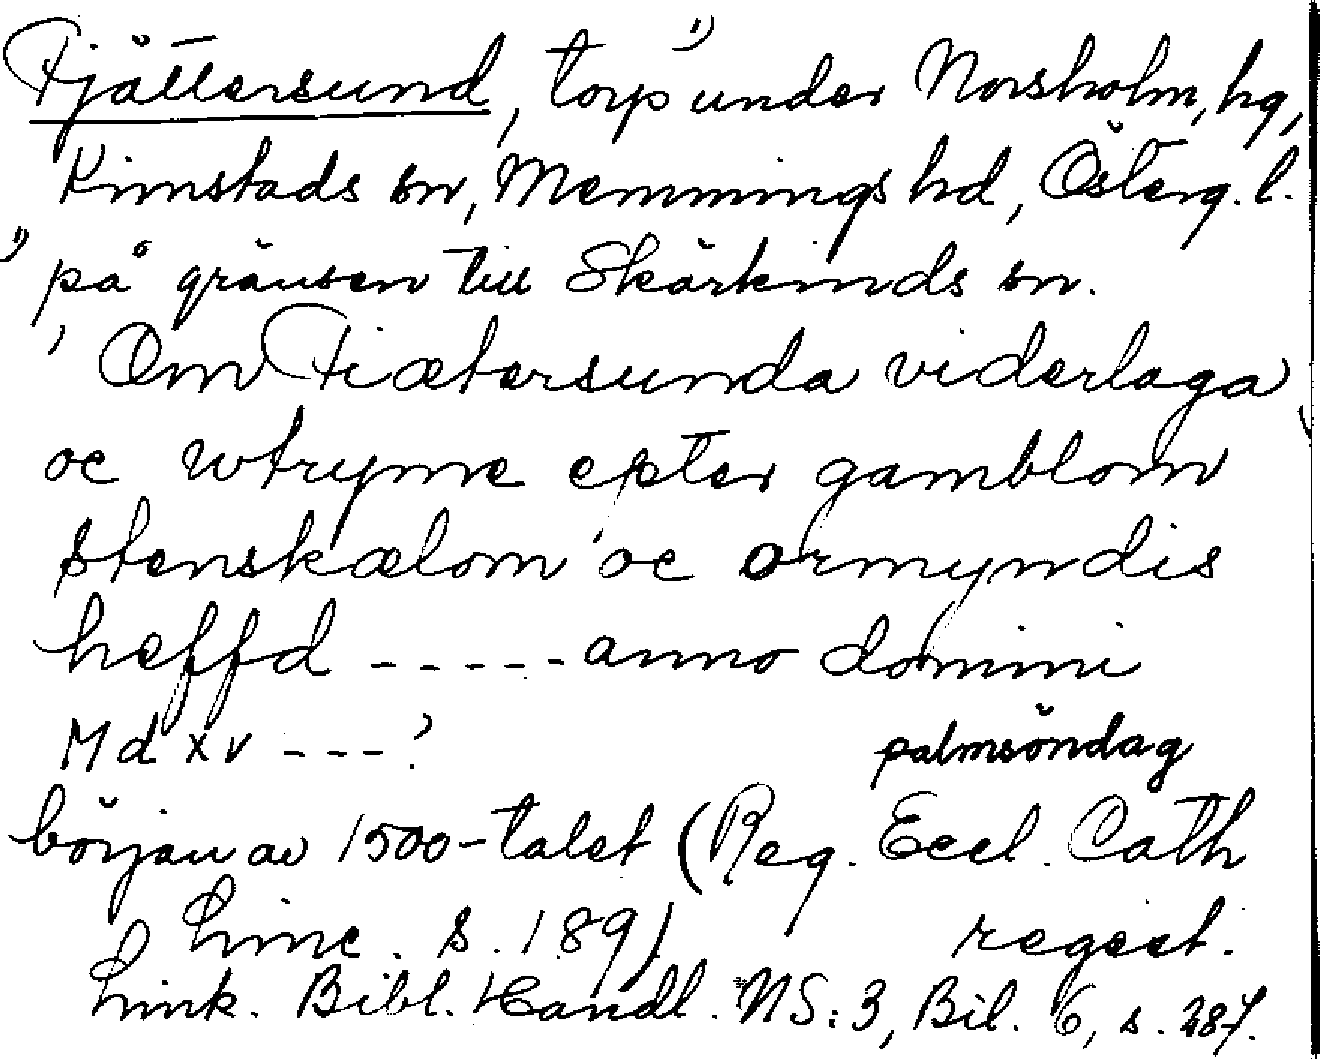 Fjättersund, torp¹⁾ under Norsholm, hg,
Kimstads sn, Memmings hd, Österg. l.
¹⁾ på gränsen till Skärkinds sn.
' Om Fiætersunda viderlaga
oc wtryme epter gamblom
stenskælom oc ormyndis
heffd ----- anno domini
Md xv ---'.
palmsöndag
början av 1500-talet (Reg. Eccl. Cath
Linc. s. 189) regest.
Link. Bibl. Handl. NS: 3, Bil. 6, s. 287.